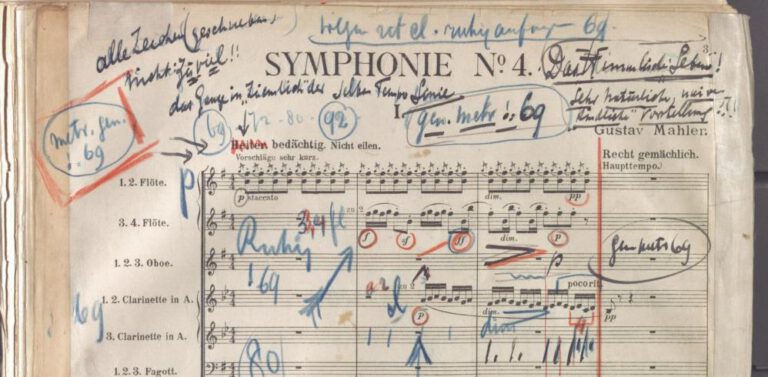 alle Zeichen (geschrieben
nicht zu viel!!
69
SYMPHONIE No 4.
Das Himmlische Leben!
3
das Ganze in "Ziemlich" der selben Tempo Linie
69 72 - 80 - 92
I.
gen. metr. ♩: 69
Sehr natürlich, naive
kindliche Vorstellung!!!
metr. gen.
♩: 69
Gustav Mahler.
Heiter bedächtig. Nicht eilen.
Vorschläge sehr kurz.
Recht gemächlich.
Haupttempo.
1. 2. Flöte.
p
p staccato
dim.
pp
3. 4. Flöte.
3, 4
zu 2
f
sf
sff
dim.
p
1. 2. 3. Oboe.
Ruhig
69
p
69
1. 2. Clarinette in A.
a 2
zu 2
p
dim.
poco rit.
pp
69
3. Clarinette in A.
dim
1. 2. 3. Fagott.
80